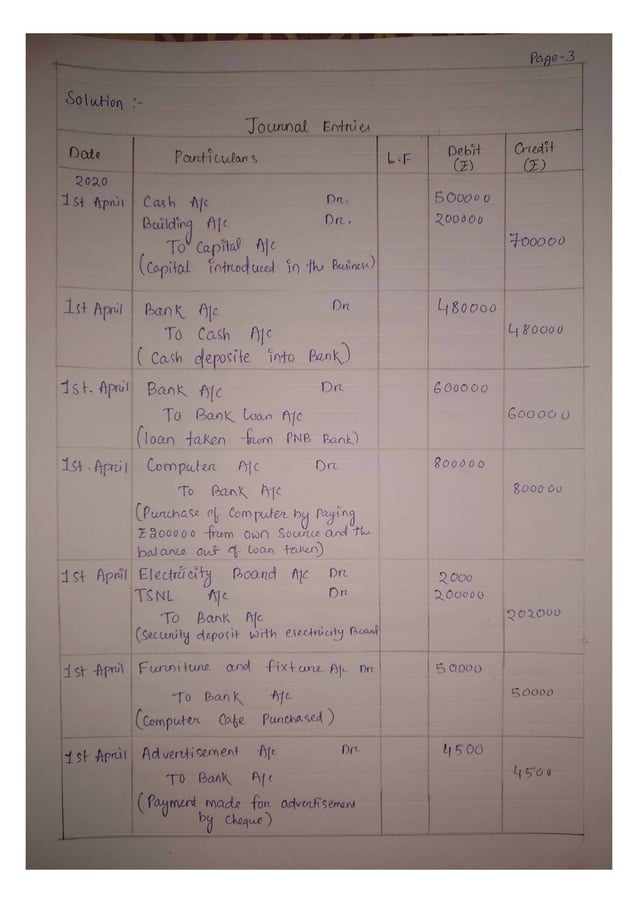 Page-3
Solution :-
Journal Entries
Date Particulars L.F Debit (₹) Credit (₹)
2020
1st April Cash A/c Dr. 500000
Building A/c Dr. 200000
To Capital A/c 700000
(Capital introduced in the Business)
1st April Bank A/c Dr 480000
To Cash A/c 480000
( Cash deposite into Bank)
1st. April Bank A/c Dr 600000
To Bank Loan A/c 600000
(loan taken from PNB Bank)
1st. April Computer A/c Dr 800000
To Bank A/c 800000
(Purchase of Computer by Paying
₹200000 from own Source and the
balance out of Loan taken)
1st April Electricity Board A/c Dr 2000
TSNL A/c Dr 200000
To Bank A/c 202000
(Security deposit with electricity Board
1st April Furniture and fixture A/c Dr 50000
To Bank A/c 50000
(Computer Cafe Punchased)
1st April Advertisement A/c Dr 4500
To Bank A/c 4500
(Payment made for advertisement
by Cheque)